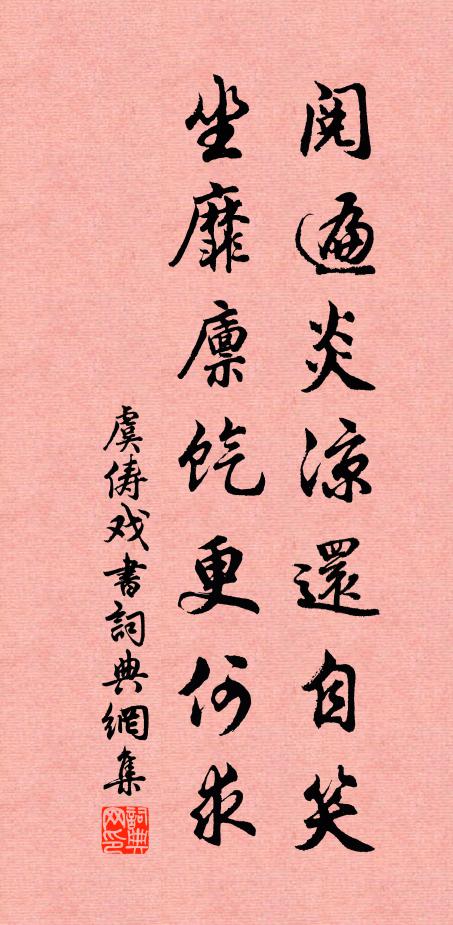 閱遍炎涼還自笑
坐靡廩餼更何求
虞儔戏書詞典網集
詞典网印